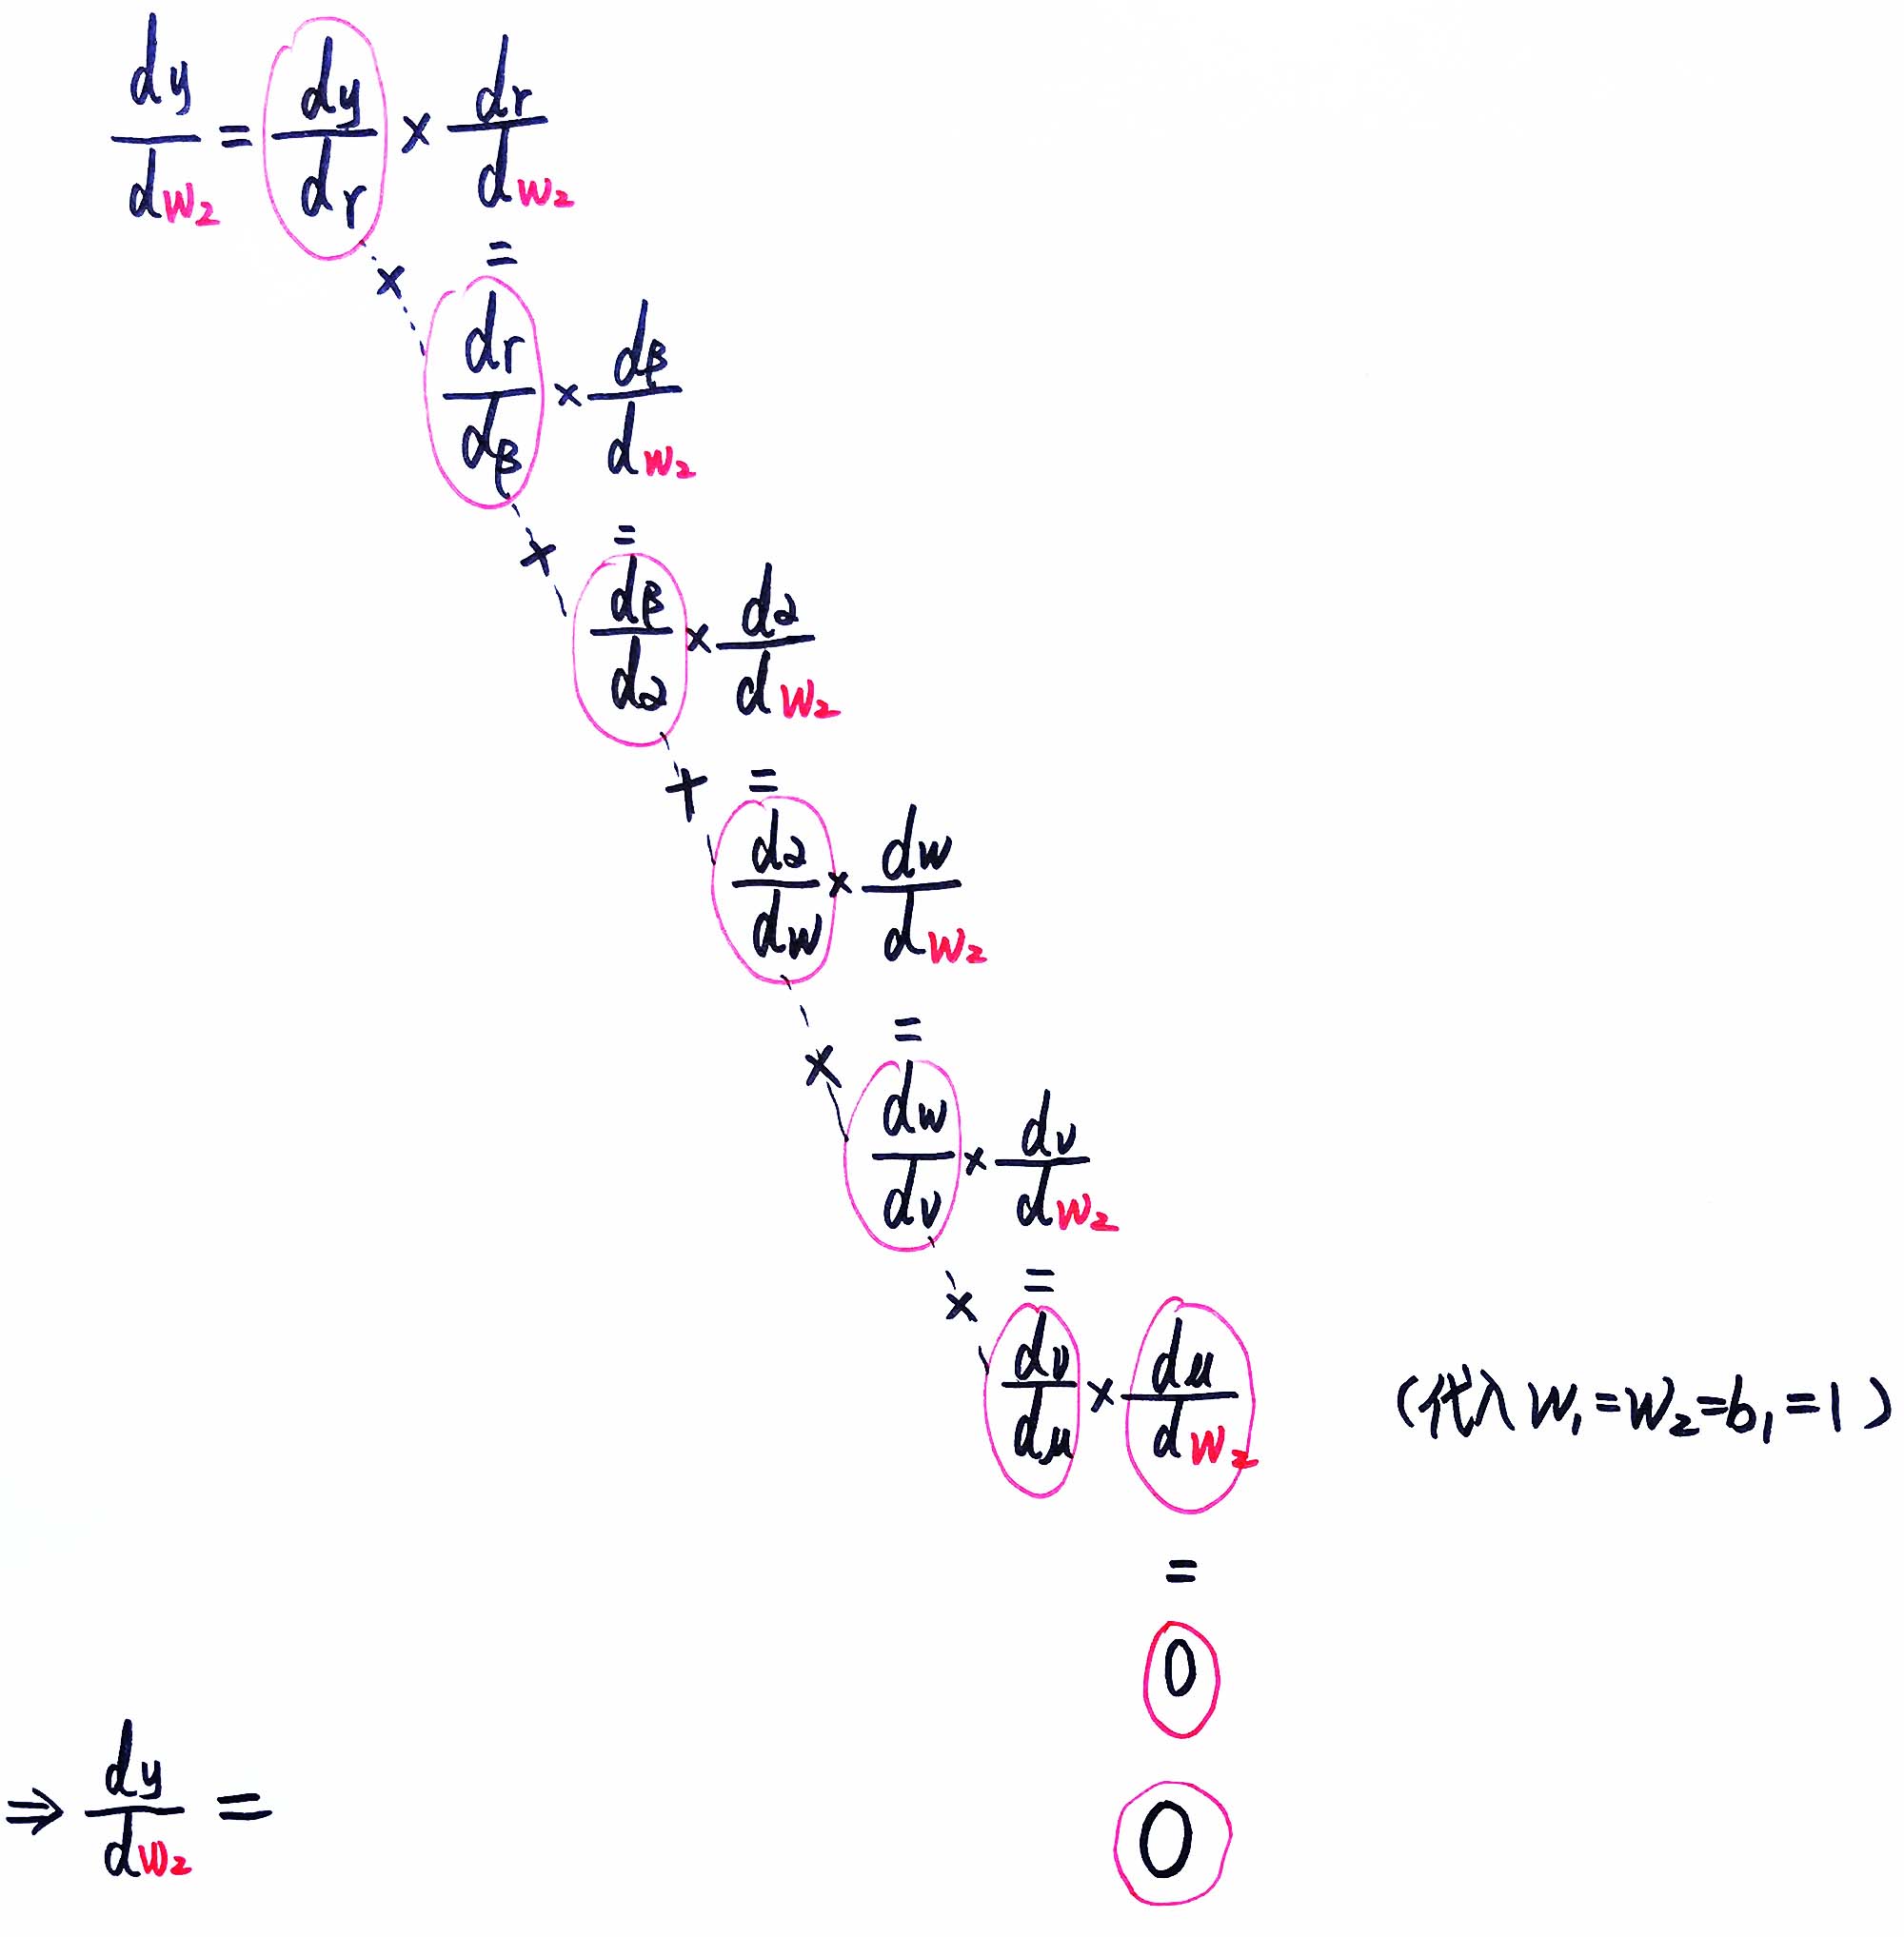 dy/dw₂ = dy/dr × dr/dw₂
=
× dr/dβ × dβ/dw₂
=
× dβ/d2 × d2/dw₂
=
× d2/dw × dw/dw₂
=
× dw/dν × dν/dw₂
=
× dν/dμ × dμ/dw₂ (代入 w₁=w₂=b₁=1)
=
0
⇒ dy/dw₂ = 0